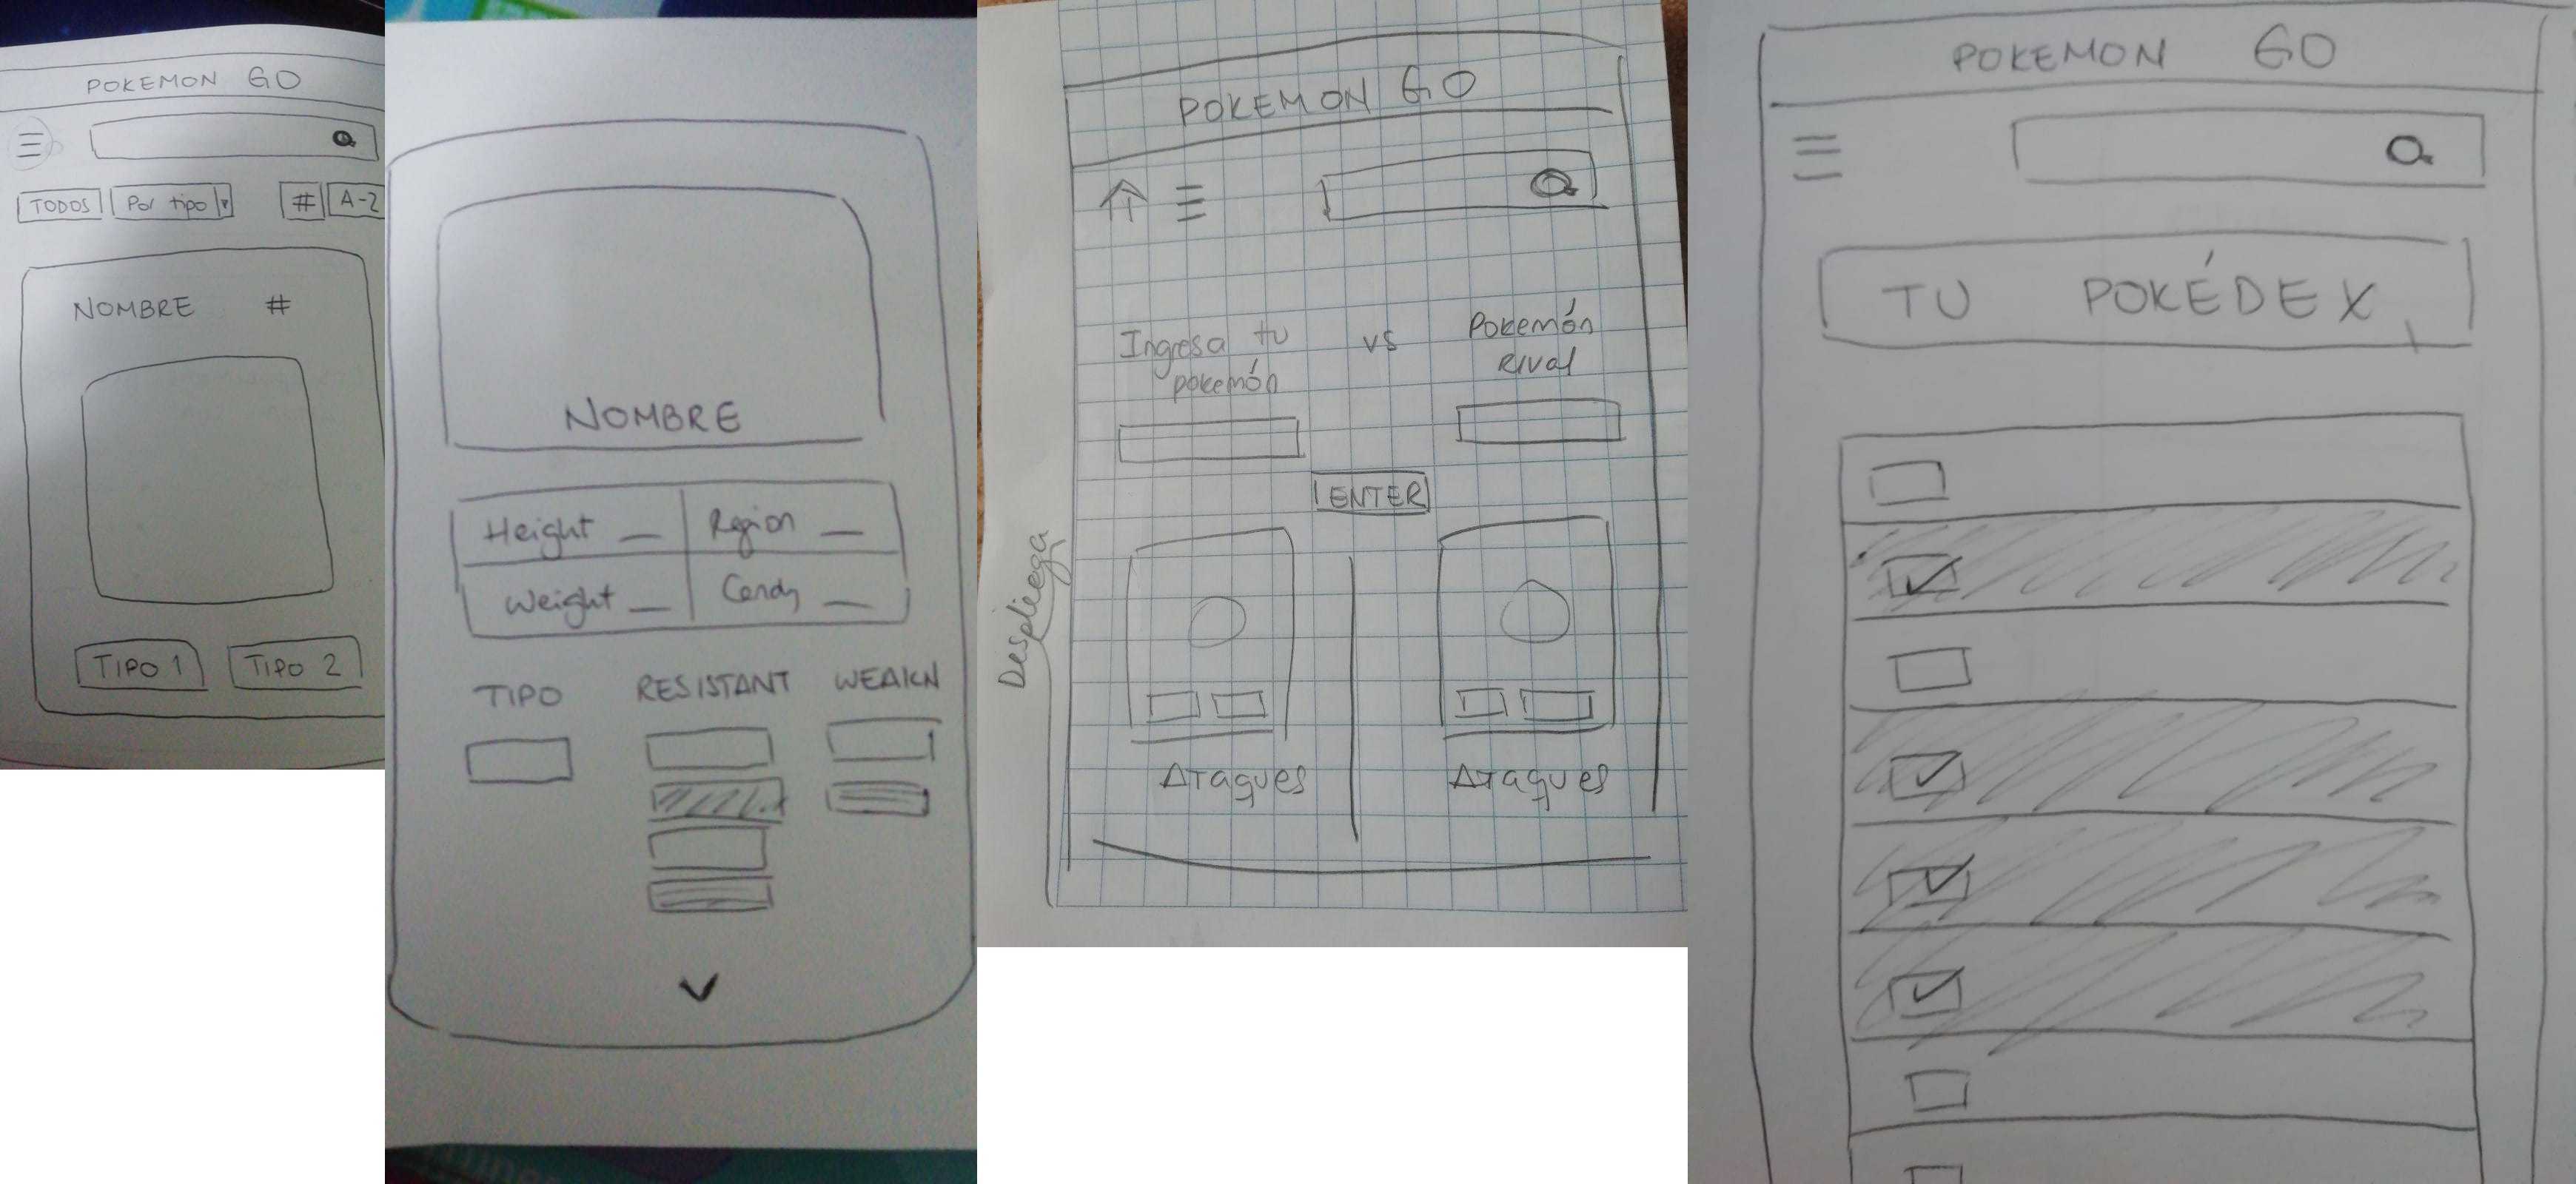 POKEMON GO
TODOS Por tipo # A-Z
NOMBRE #
TIPO 1 TIPO 2
NOMBRE
Height Region
Weight Candy
TIPO RESISTANT WEAKN
POKEMON GO
Ingresa tu pokemón
vs
Pokemón Rival
ENTER
Despliega
Ataques Ataques
POKEMON GO
TU POKÉDEX